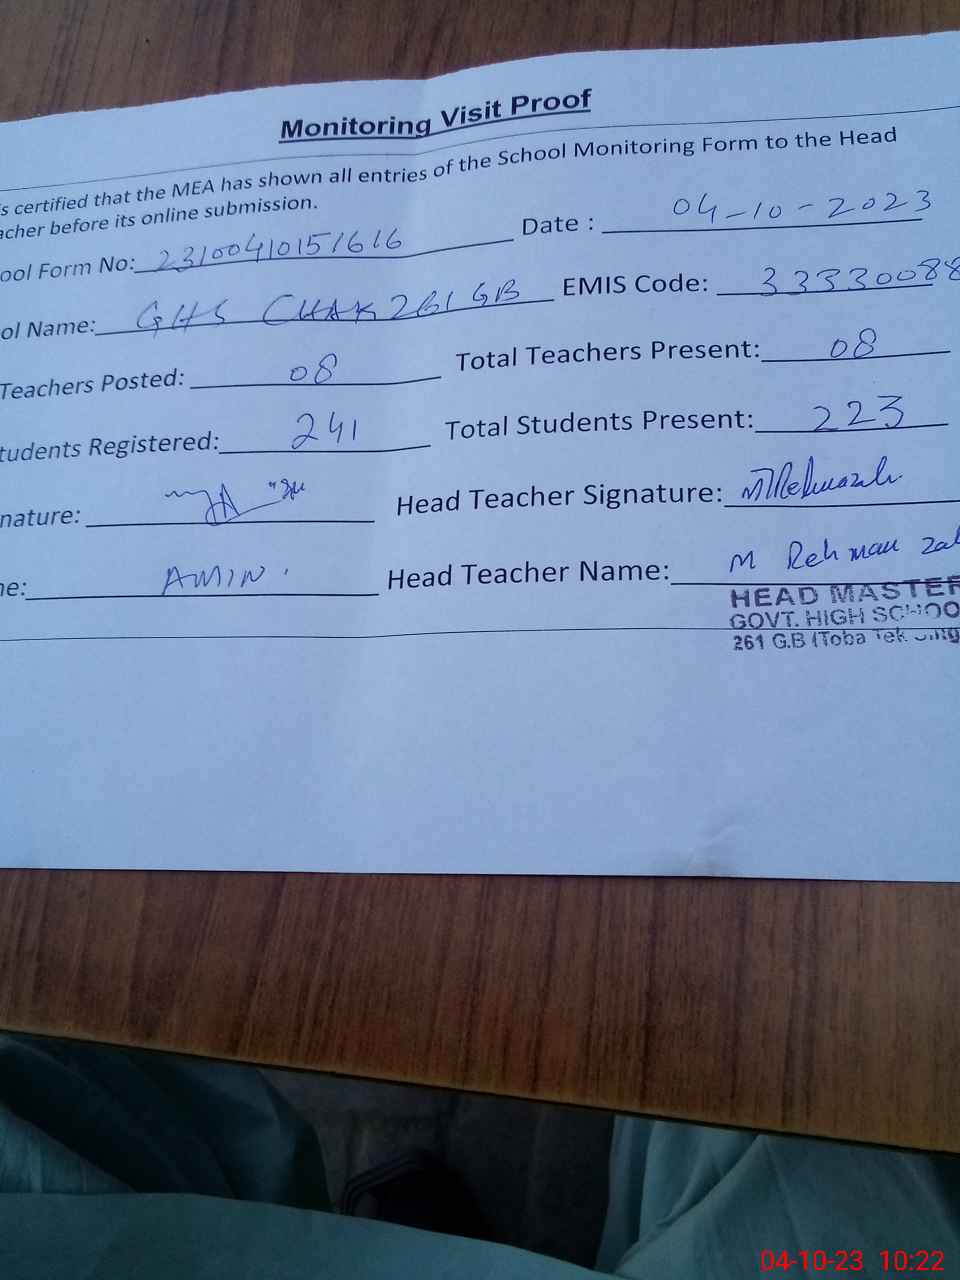 Monitoring Visit Proof
is certified that the MEA has shown all entries of the School Monitoring Form to the Head
acher before its online submission.
ool Form No: 23100410151616 Date : 04-10-2023
ol Name: GHS CHAK 261 GB EMIS Code: 33330088
Teachers Posted: 08 Total Teachers Present: 08
tudents Registered: 241 Total Students Present: 223
nature: Head Teacher Signature:
ne: AMIN. Head Teacher Name: M Rehman Zal
HEAD MASTER
GOVT. HIGH SCHOO
261 G.B (Toba Tek Sing
04-10-23 10:22